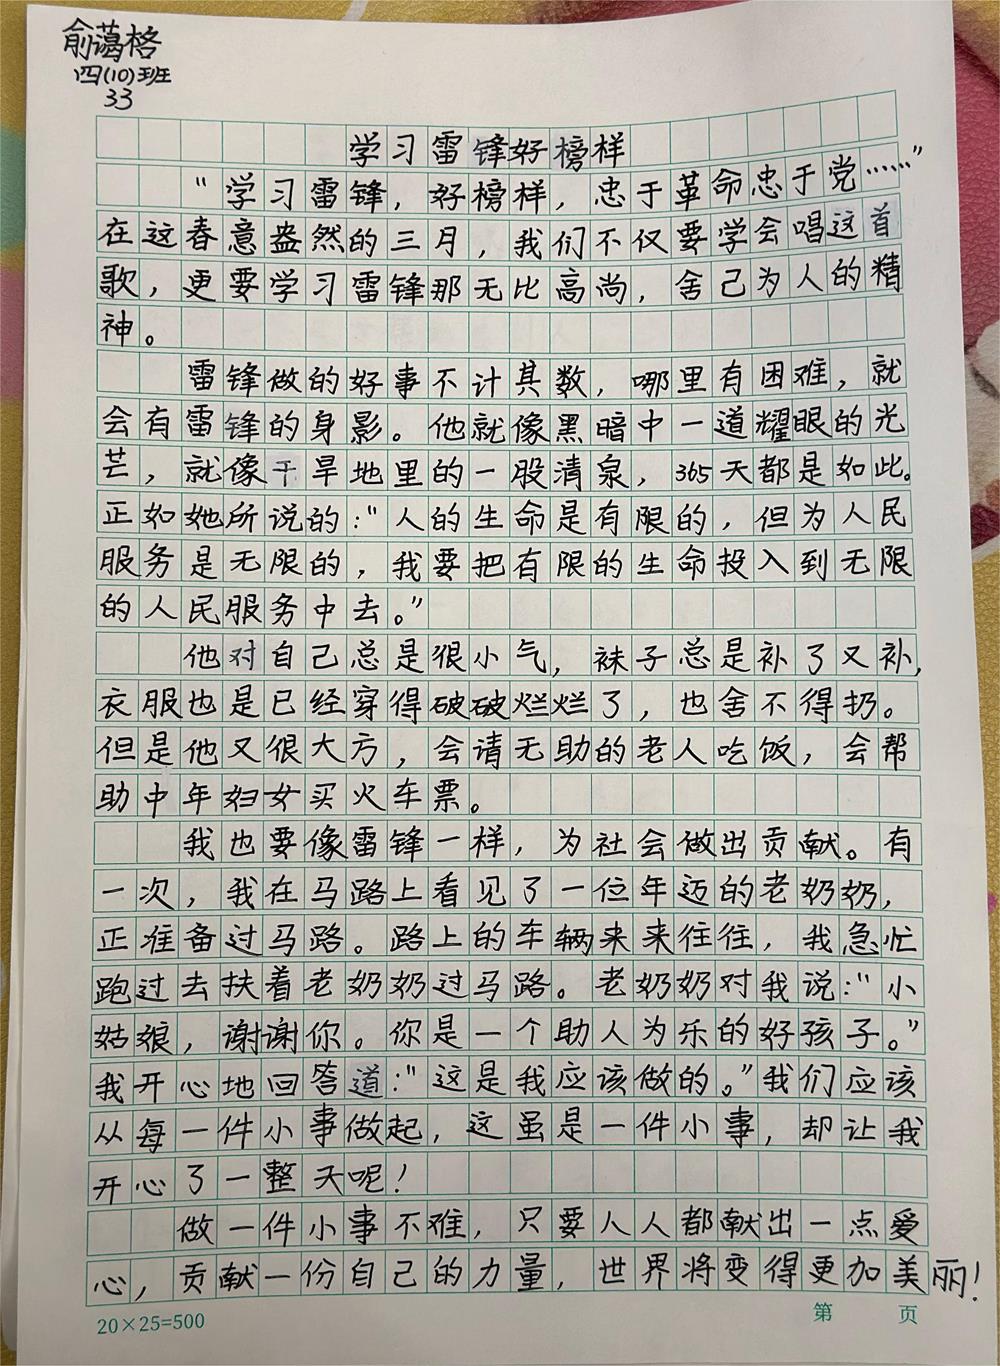 俞蔼格
四(10)班
33
学习雷锋好榜样
“学习雷锋，好榜样，忠于革命忠于党……”
在这春意盎然的三月，我们不仅要学会唱这首
歌，更要学习雷锋那无比高尚，舍己为人的精
神。
雷锋做的好事不计其数，哪里有困难，就
会有雷锋的身影。他就像黑暗中一道耀眼的光
芒，就像干旱地里的一股清泉，365天都是如此。
正如她所说的：“人的生命是有限的，但为人民
服务是无限的，我要把有限的生命投入到无限
的人民服务中去。”
他对自己总是很小气，袜子总是补了又补，
衣服也是已经穿得破破烂烂了，也舍不得扔。
但是他又很大方，会请无助的老人吃饭，会帮
助中年妇女买火车票。
我也要像雷锋一样，为社会做出贡献。有
一次，我在马路上看见了一位年迈的老奶奶，
正准备过马路。路上的车辆来来往往，我急忙
跑过去扶着老奶奶过马路。老奶奶对我说：“小
姑娘，谢谢你。你是一个助人为乐的好孩子。”
我开心地回答道：“这是我应该做的。”我们应该
从每一件小事做起，这虽是一件小事，却让我
开心了一整天呢！
做一件小事不难，只要人人都献出一点爱
心，贡献一份自己的力量，世界将变得更加美丽！
20×25=500
第 页